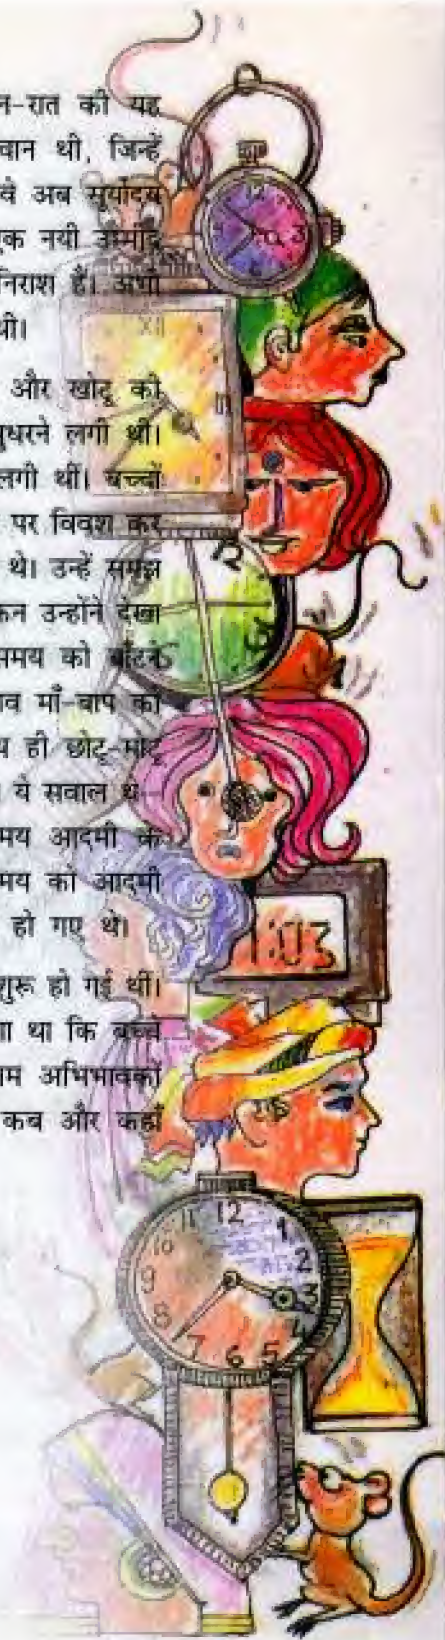 न-रात की यह
वान थी, जिन्हें
वे अब सूर्योदय
एक नयी उम्मीद
निराश हैं। अभी
थी।
और खोटू को
सुधरने लगी थी।
लगी थीं। बच्चों
पर विवश कर
थे। उन्हें समझ
कन उन्होंने देखा
समय को बाँटने
माँ-बाप को
य ही छोटू-मोटू
ये सवाल थे—
मय आदमी के
मय को आदमी
हो गए थे।
शुरू हो गई थीं।
गा था कि बच्चे
ाम अभिभावकों
कब और कहाँ
12
3
XII
III
12
1:03
11 12 1
10 2
9 3
8 4
7 6 5